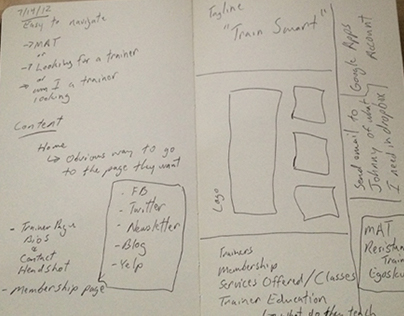 7/19/12
Easy to navigate
→ MAT
or
→ Looking for a trainer
or
am I a trainer
looking
Content
Home
↳ Obvious way to go
to the page they want
- FB
- Twitter
- Newsletter
- Blog
- Yelp
- Trainer Pages
Bios
&
Contact
Headshot
- Membership page
Tagline
"Train Smart"
Logo
Trainers
Membership
Services Offered/Classes
Trainer Education
what do they teach
Google Apps
Account
Send email to
Johnny of what
I need in dropbox
MAT
Resistan
Train
Egoscu